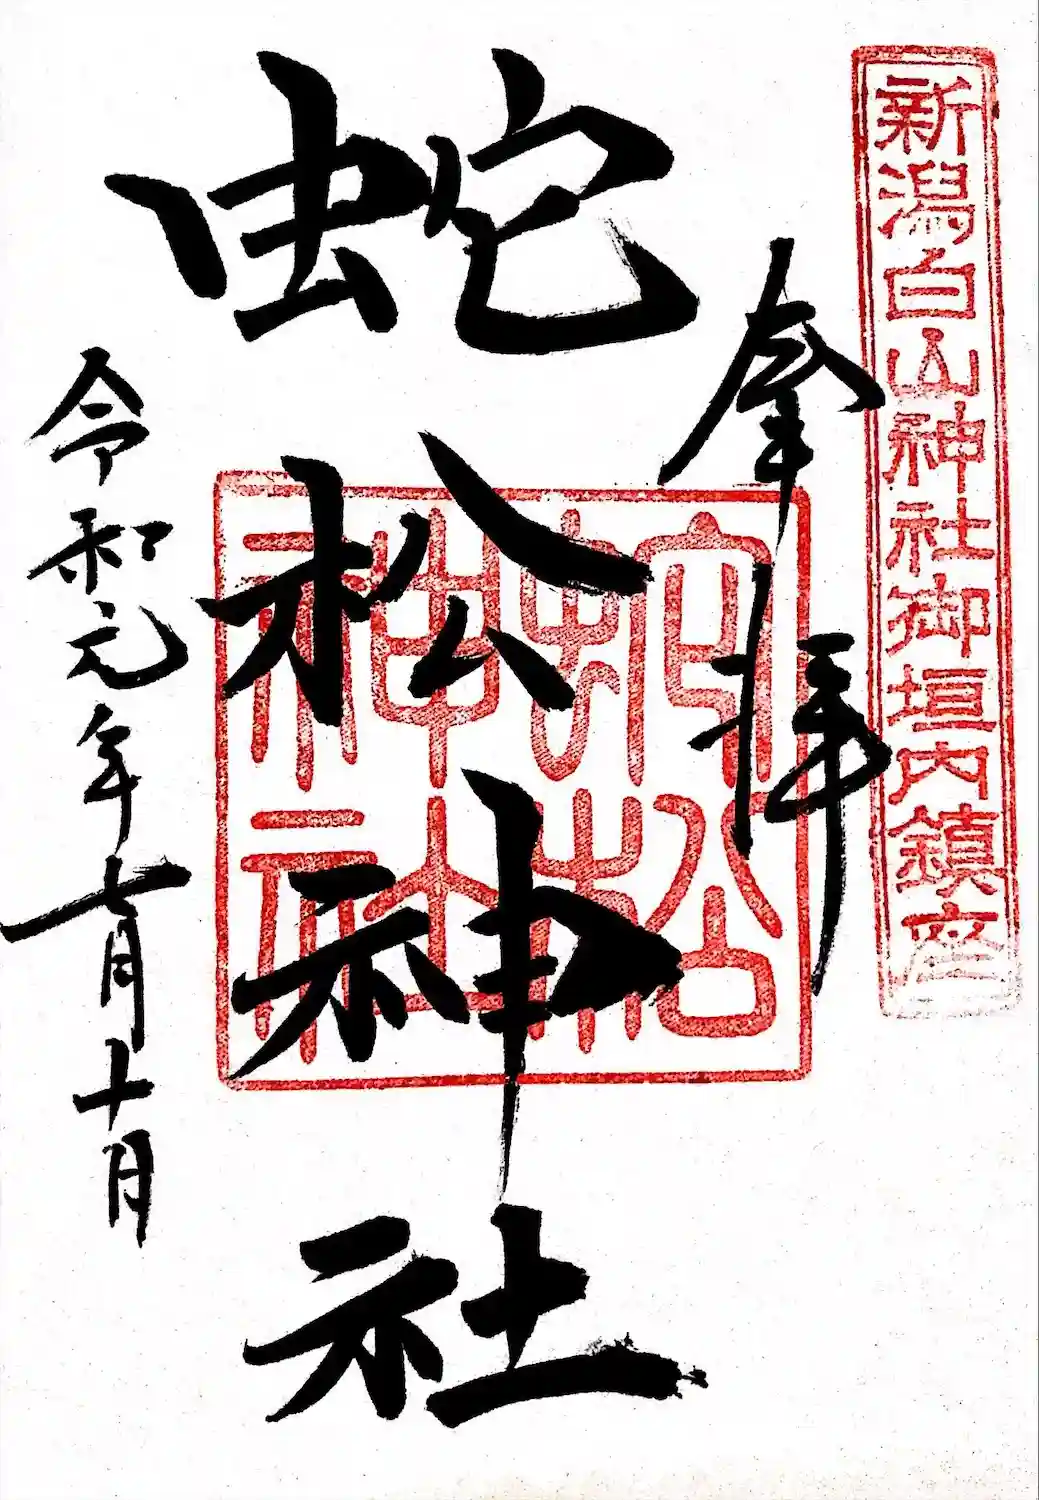 新潟白山神社御垣内鎮座
奉拝
蛇松神社
蛇松
神社
令和元年七月十月